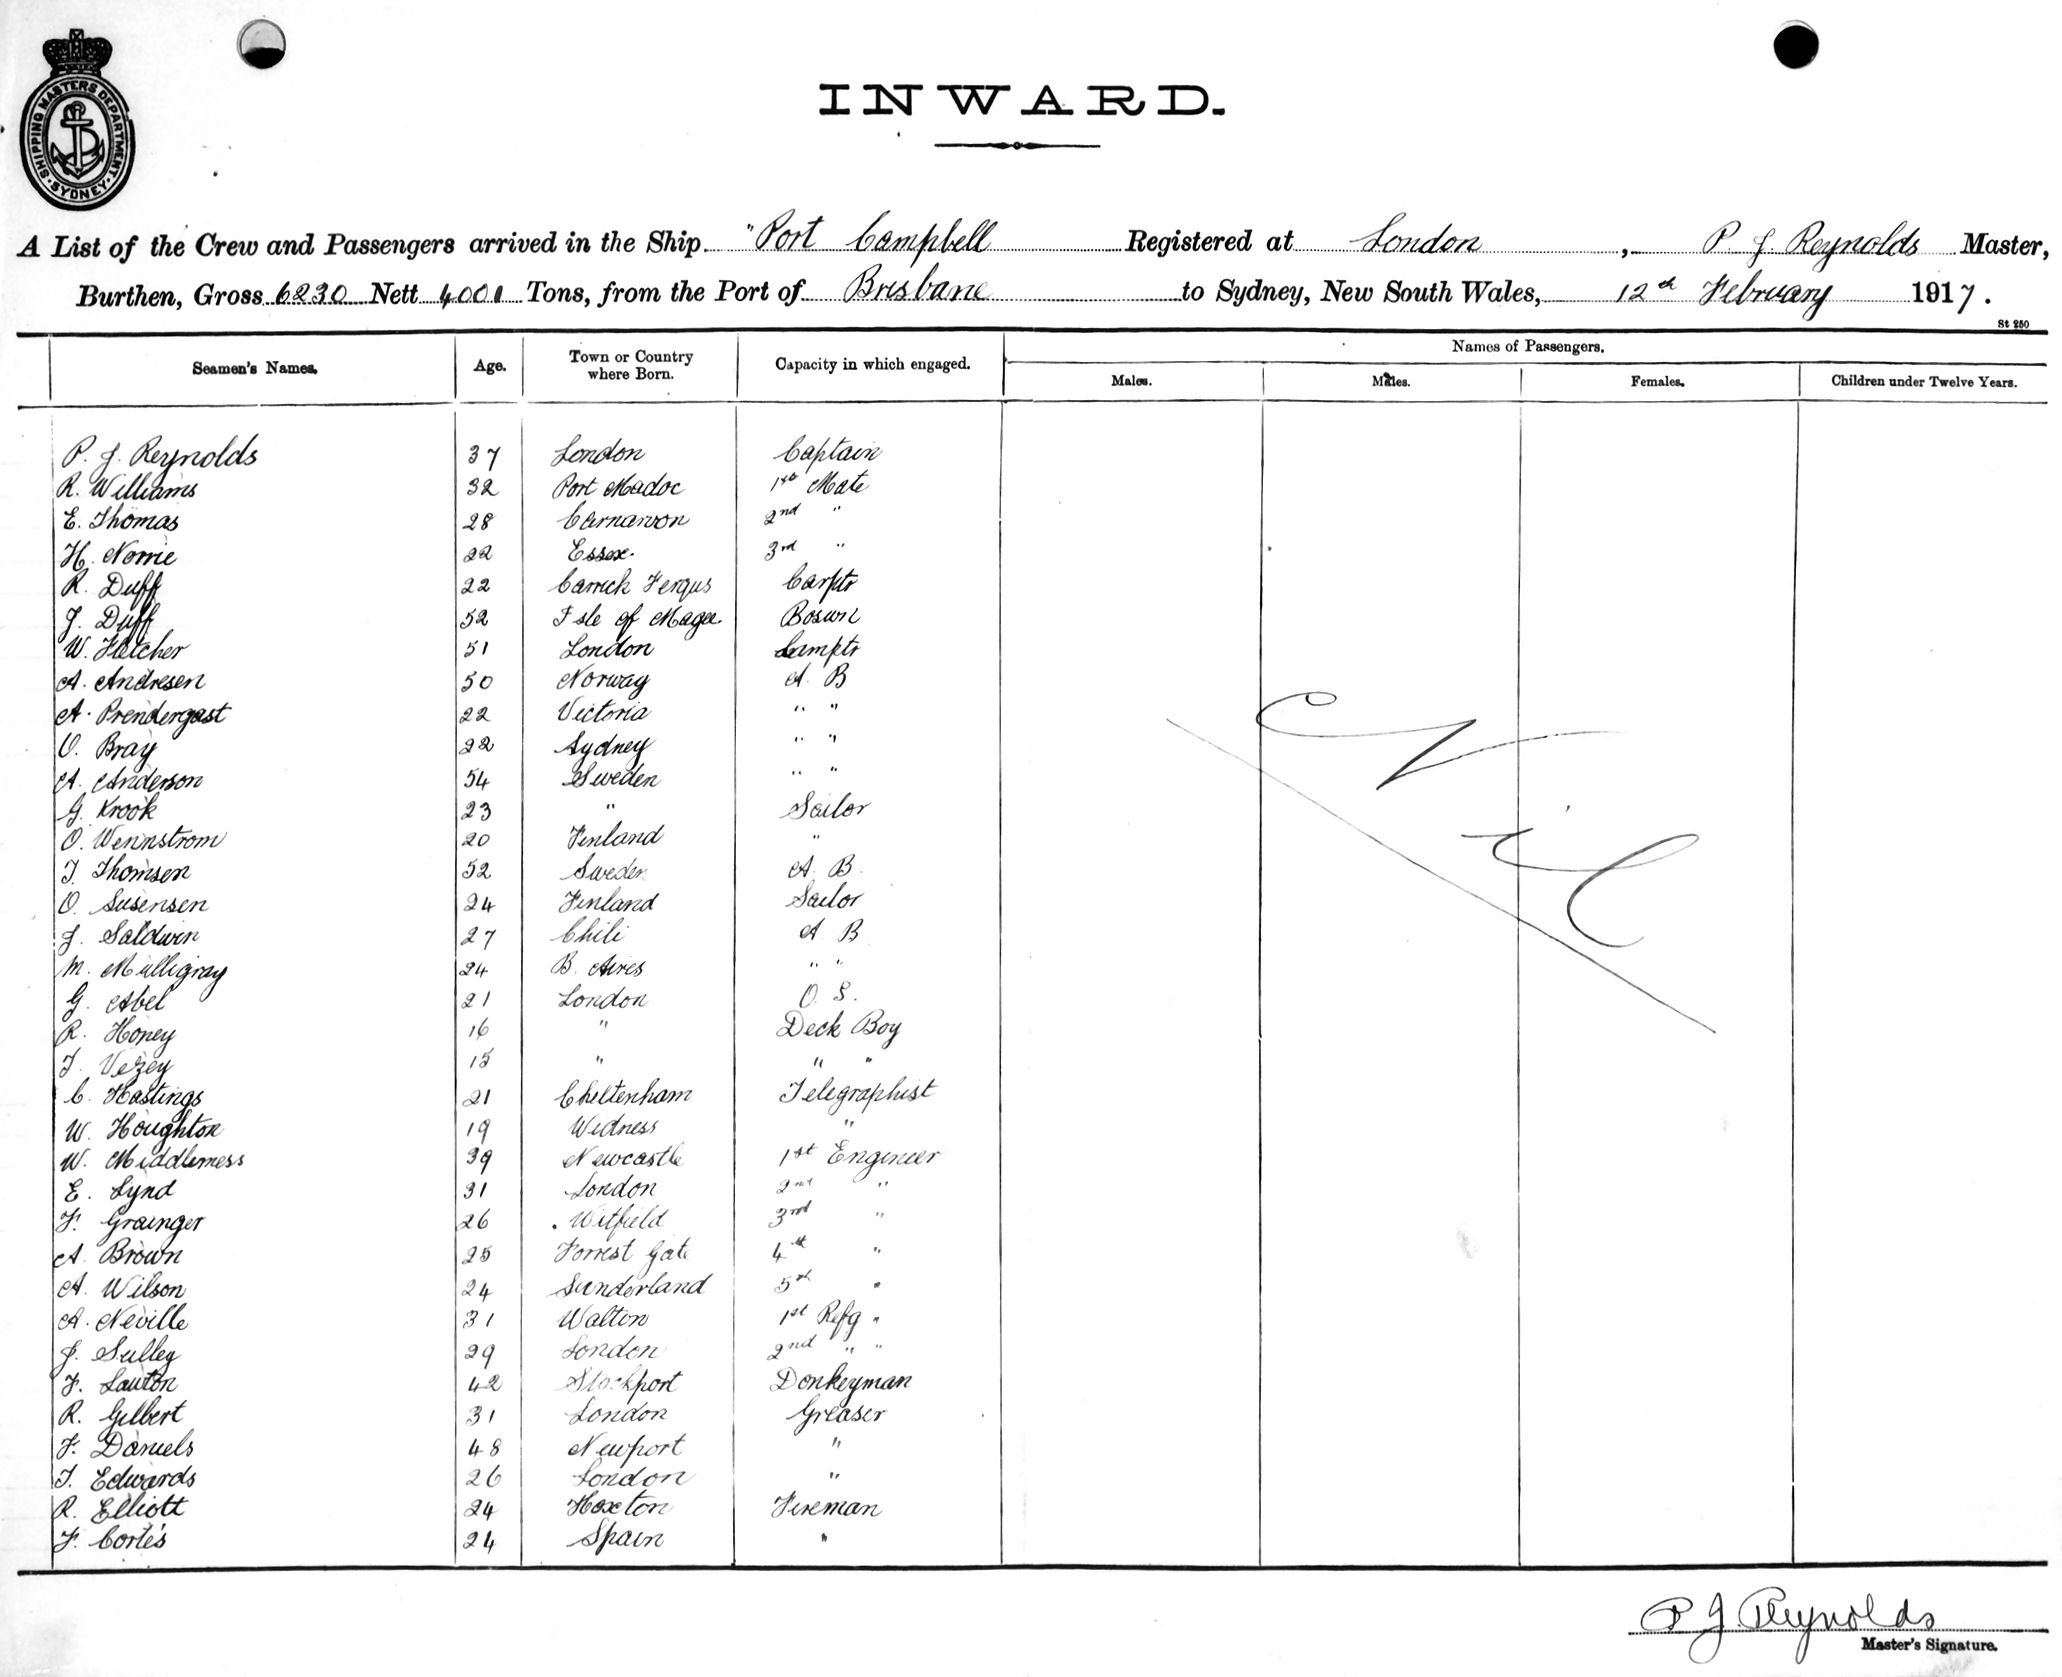 SHIPPING MASTERS DEPARTMENT · SYDNEY ·
INWARD.
A List of the Crew and Passengers arrived in the Ship "Port Campbell Registered at London, P. J. Reynolds Master,
Burthen, Gross 6230 Nett 4001 Tons, from the Port of Brisbane to Sydney, New South Wales, 12th February 1917.
St 250
Seamen's Names. Age. Town or Country where Born. Capacity in which engaged. Names of Passengers.
Males. Males. Females. Children under Twelve Years.
P. J. Reynolds 37 London Captain
R. Williams 32 Port Madoc 1st Mate
E. Thomas 28 Carnarvon 2nd "
H. Norrie 22 Essex 3rd "
R. Duff 22 Carrick Fergus Carptr
J. Duff 52 Isle of Magee Boswn
W. Fletcher 51 London Lamptr
A. Andresen 50 Norway A. B
A. Prendergast 22 Victoria " "
O. Bray 22 Sydney " "
A. Anderson 54 Sweden " "
G. Krook 23 " Sailor
O. Wennstrom 20 Finland "
T. Thomsen 52 Sweden A. B.
O. Susensen 24 Finland Sailor
J. Saldwin 27 Chili A B
M. Mulligray 24 B. Aires " "
G. Abel 21 London O. S.
R. Honey 16 " Deck Boy
T. Vezey 15 " " "
C. Hastings 21 Cheltenham Telegraphist
W. Houghton 19 Widness "
W. Middlemess 39 Newcastle 1st Engineer
E. Lynd 31 London 2nd "
F. Grainger 26 Witfield 3rd "
A. Brown 25 Forrest Gate 4th "
A. Wilson 24 Sunderland 5th "
A. Neville 31 Walton 1st Refg "
J. Sulley 29 London 2nd " "
F. Lawton 42 Stockport Donkeyman
R. Gilbert 31 London Greaser
F. Daniels 48 Newport "
T. Edwards 26 London "
R. Elliott 24 Hoxton Fireman
F. Cortés 24 Spain "
Nil
P J Reynolds
Master's Signature.